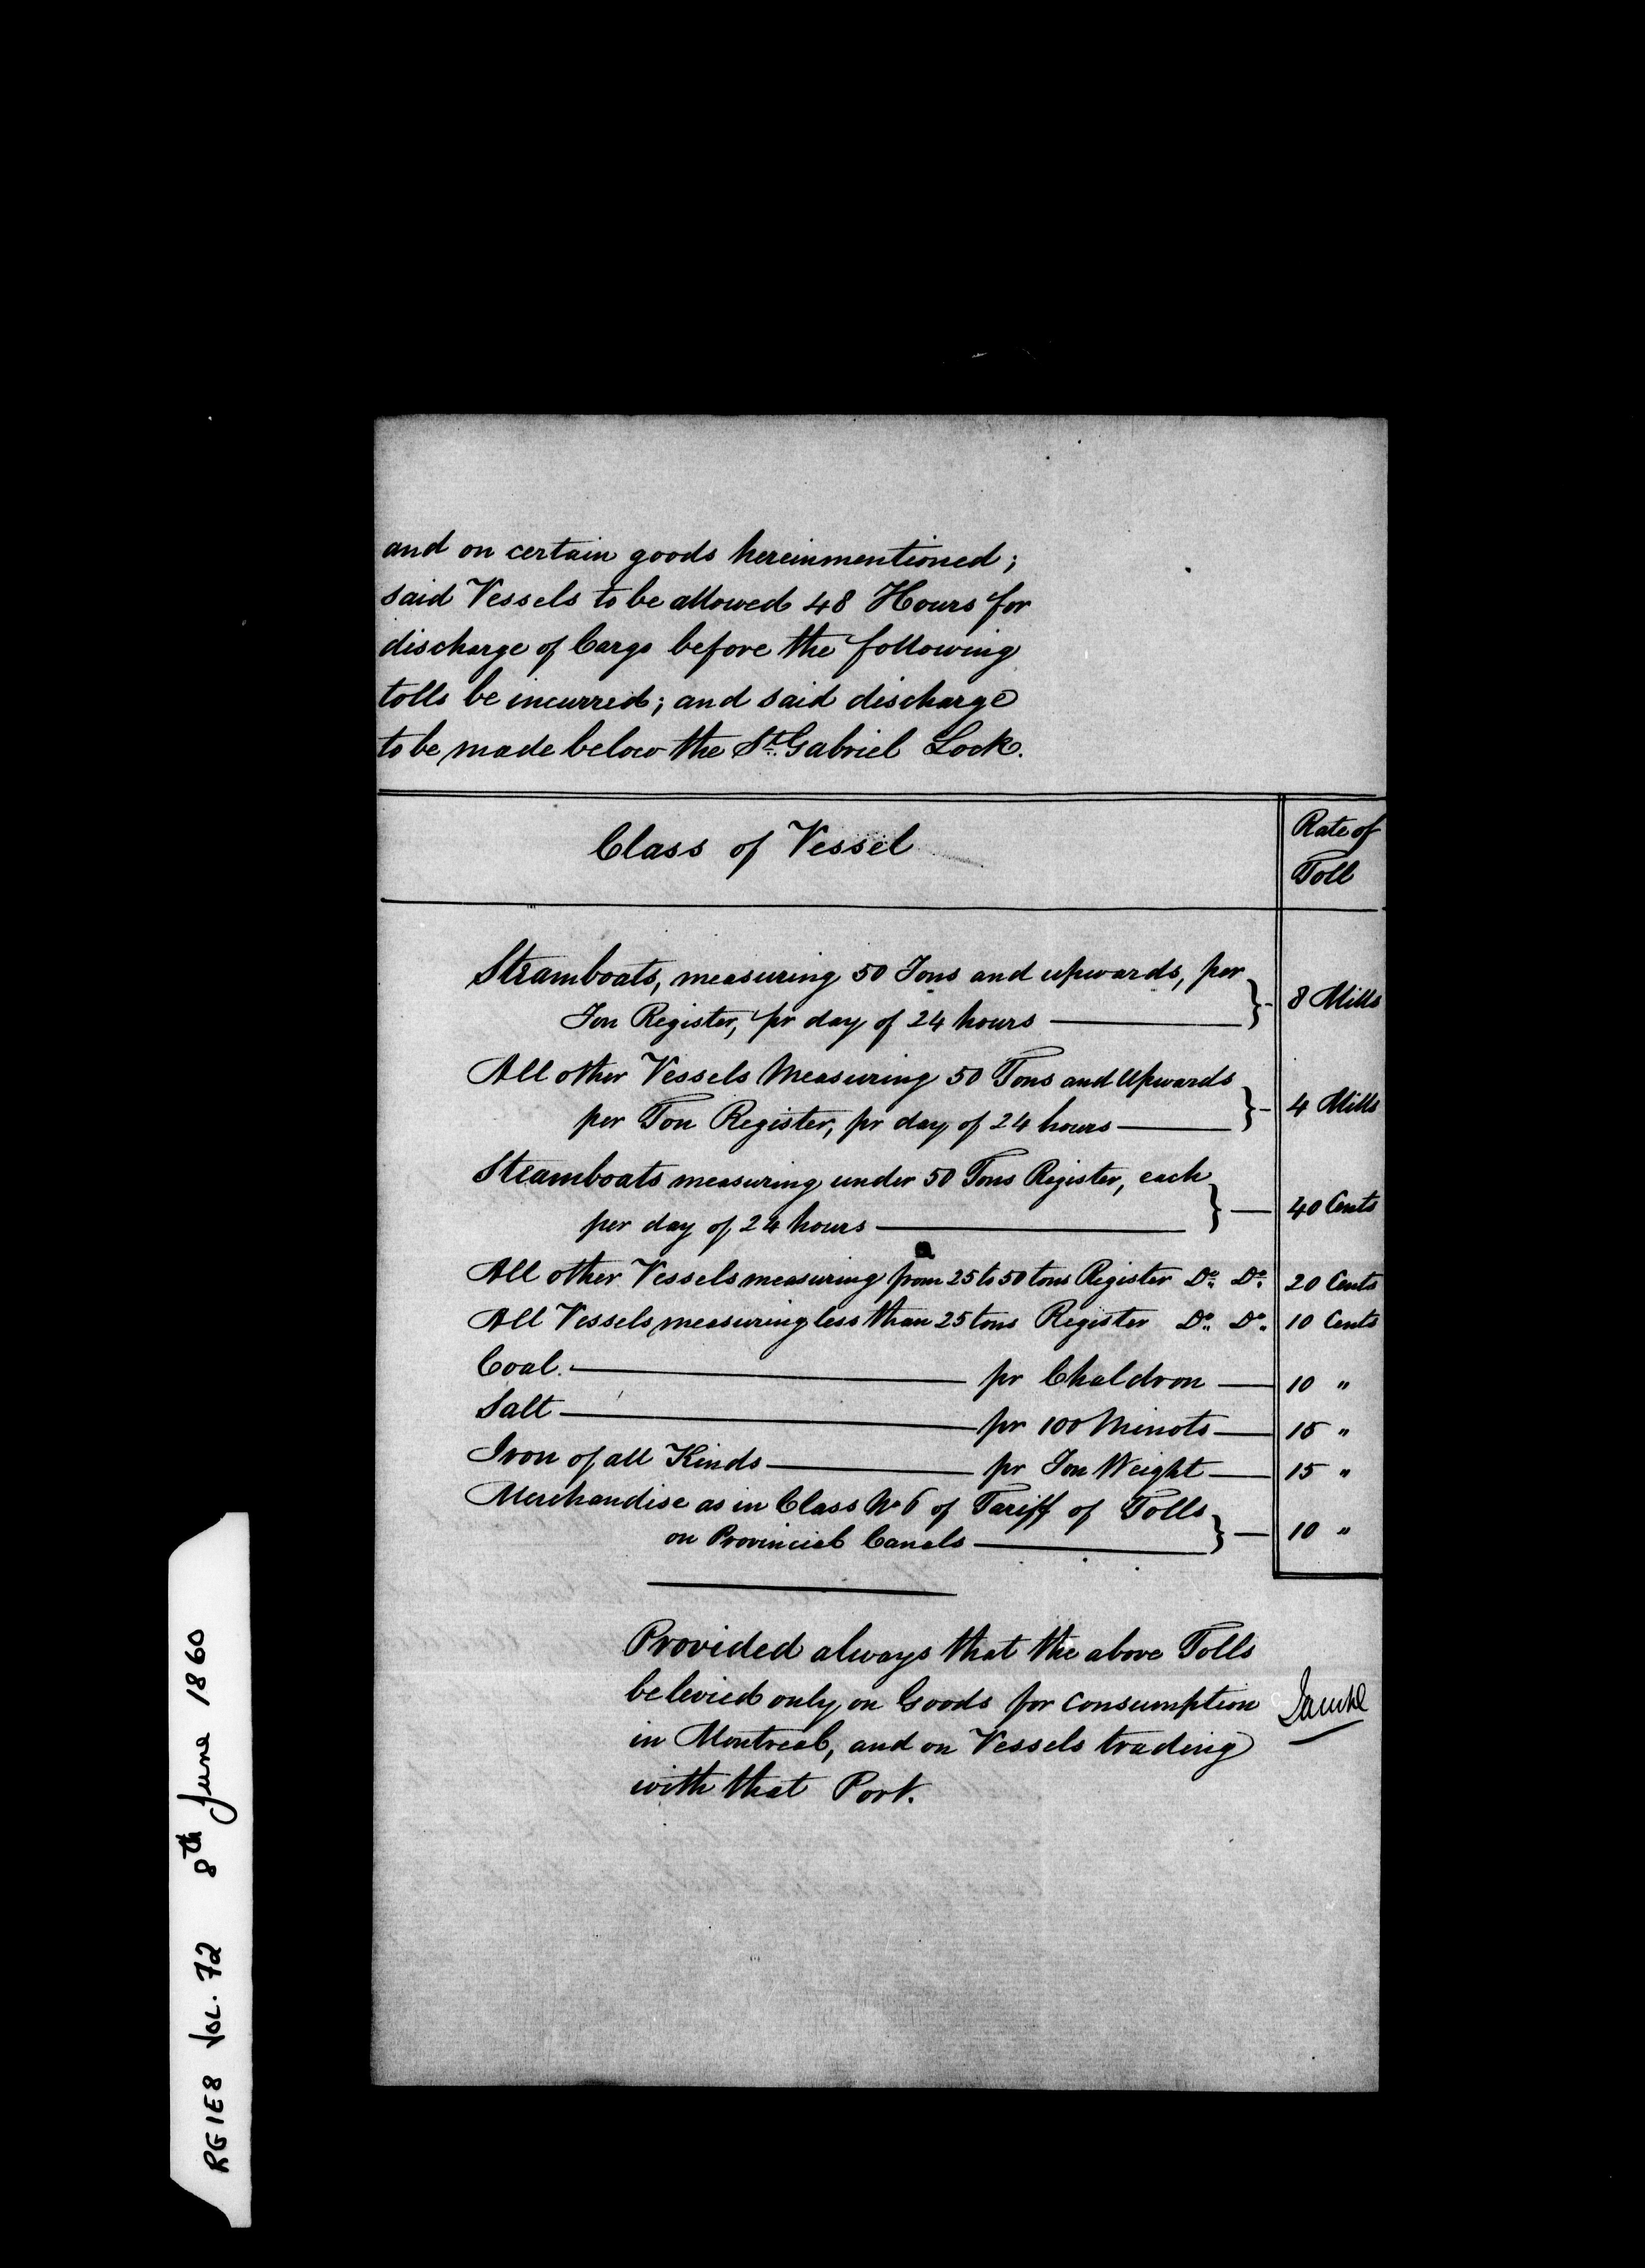 and on certain goods hereinmentioned;
said Vessels to be allowed 48 Hours for
discharge of Cargo before the following
tolls be incurred; and said discharge
to be made below the St. Gabriel Lock.
Class of Vessel
Rate of
Toll
Steamboats, measuring 50 Tons and upwards, per
Ton Register, pr day of 24 hours } 8 Mills
All other Vessels Measuring 50 Tons and Upwards
per Ton Register, pr day of 24 hours } 4 Mills
Steamboats measuring under 50 Tons Register, each
per day of 24 hours } 40 Cents
All other Vessels measuring from 25 to 50 tons Register Do. Do. 20 Cents
All Vessels measuring less than 25 tons Register Do. Do. 10 Cents
Coal. pr Chaldron 10 "
Salt pr 100 Minots 15 "
Iron of all Kinds pr Ton Weight 15 "
Merchandise as in Class No 6 of Tariff of Tolls
on Provincial Canals } 10 "
Provided always that the above Tolls
be levied only on Goods for consumption
in Montreal, and on Vessels trading
with that Port.
RG1E8 Vol. 72 8th June 1860